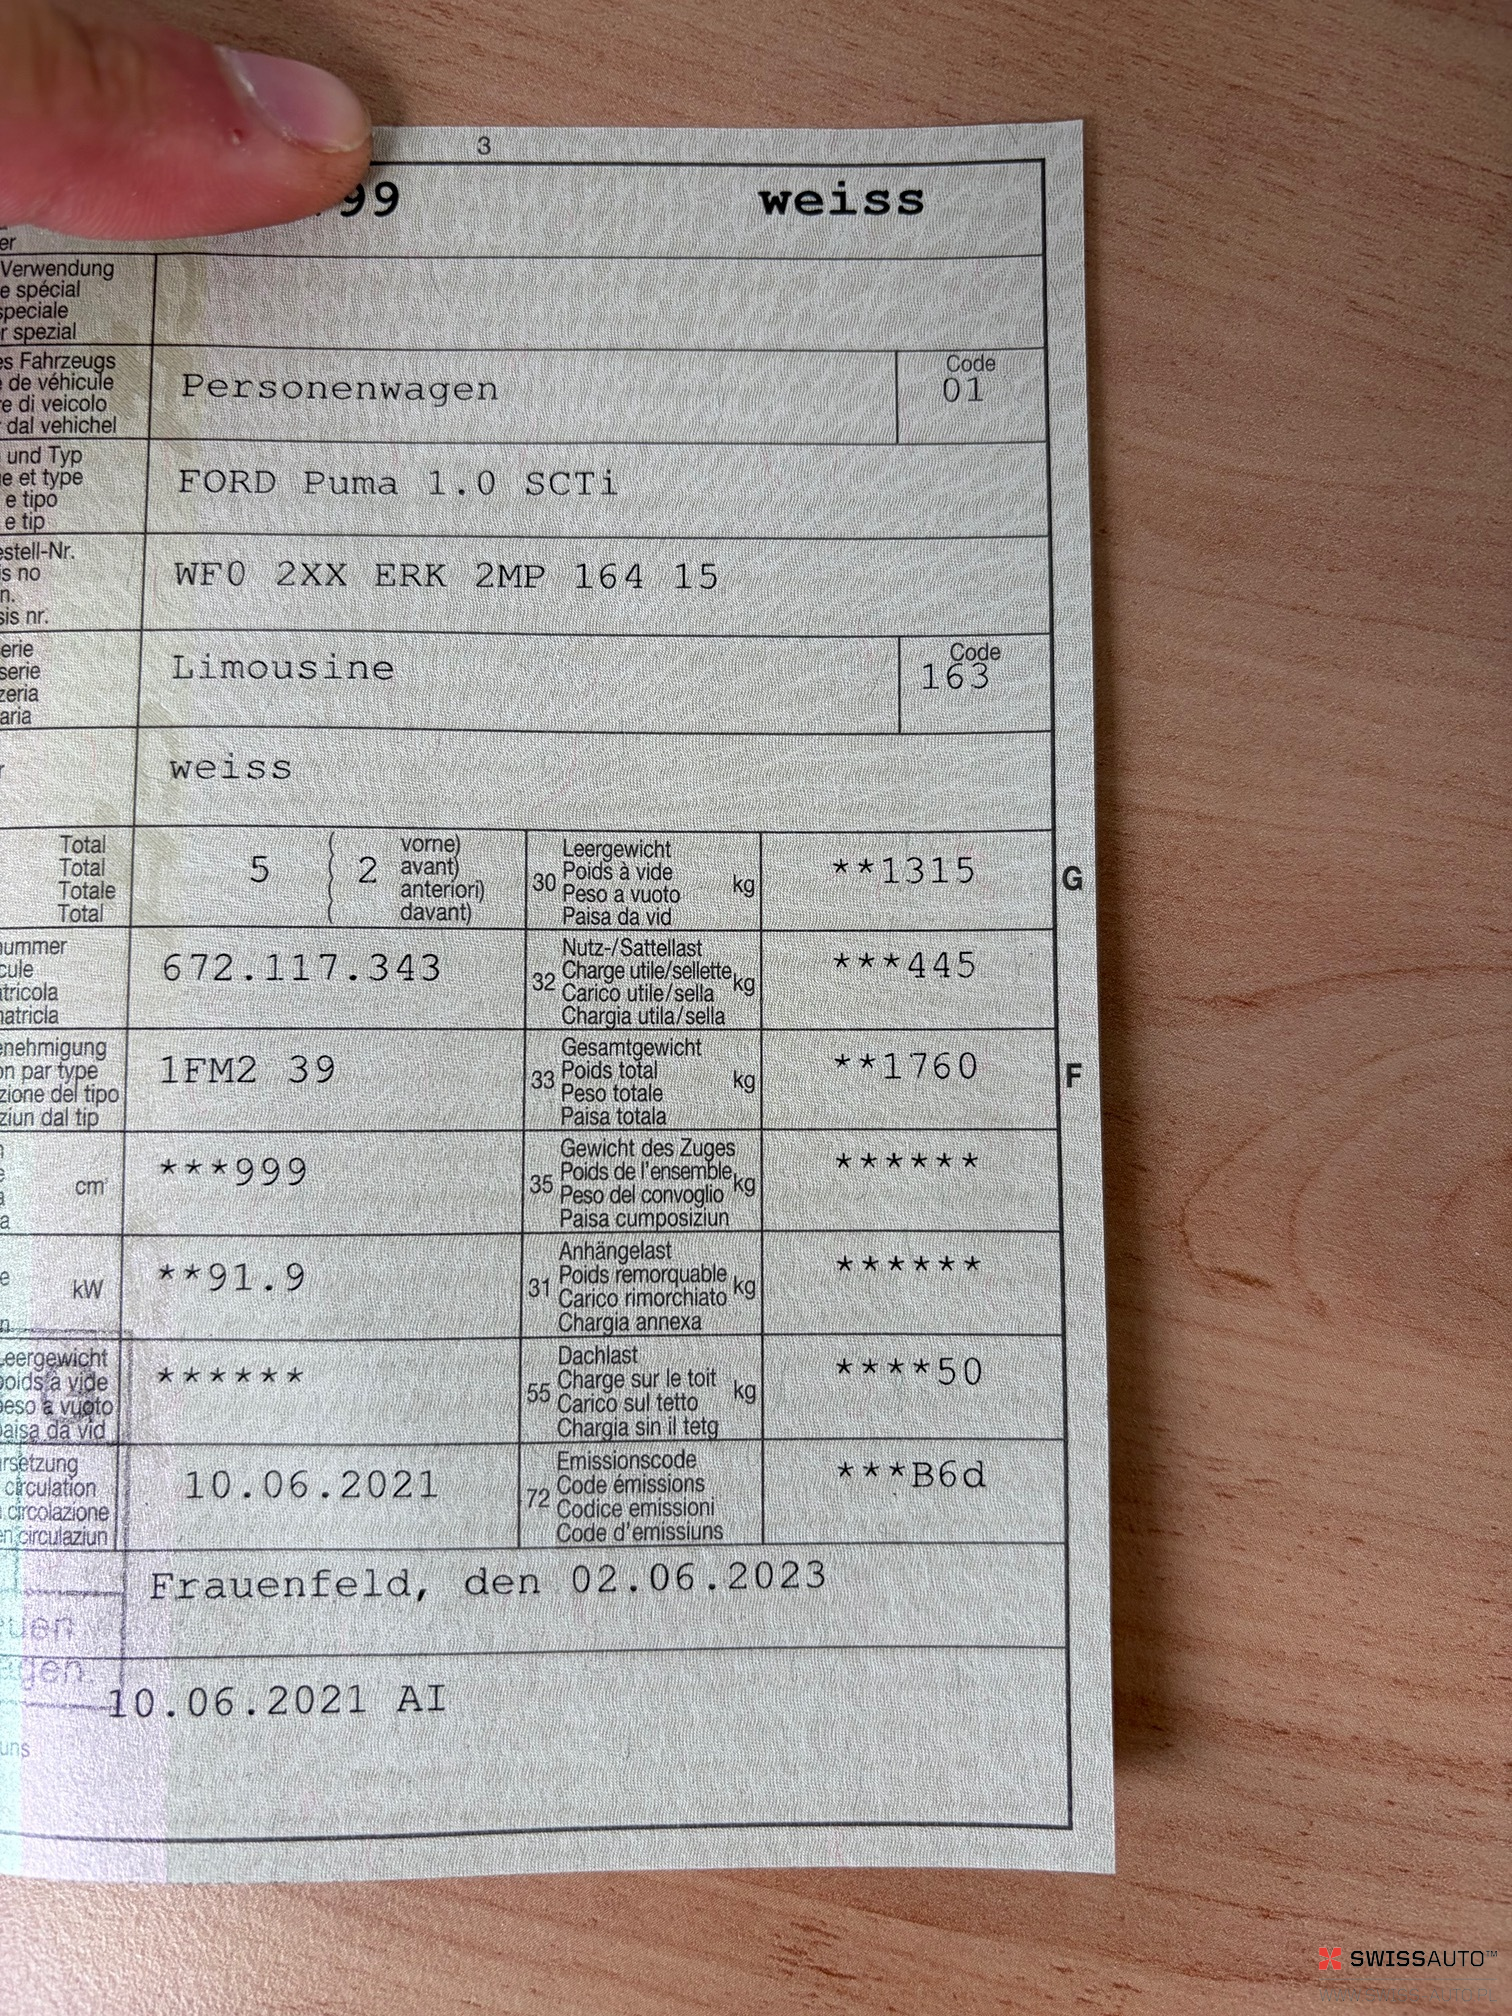 3
99 weiss
er
Verwendung
e spécial
speciale
r spezial
es Fahrzeugs
de véhicule
re di veicolo
dal vehichel
Personenwagen
Code
01
und Typ
e et type
e tipo
e tip
FORD Puma 1.0 SCTi
estell-Nr.
is no
n.
sis nr.
WF0 2XX ERK 2MP 164 15
erie
serie
zeria
aria
Limousine
Code
163
r
weiss
Total
Total
Totale
Total
5 ( 2
vorne)
avant)
anteriori)
davant)
30
Leergewicht
Poids à vide
Peso a vuoto
Paisa da vid
kg
**1315
G
nummer
cule
atricola
matricla
672.117.343
32
Nutz-/Sattellast
Charge utile/sellette
Carico utile/sella
Chargia utila/sella
kg
***445
enehmigung
on par type
zione del tipo
ziun dal tip
1FM2 39
33
Gesamtgewicht
Poids total
Peso totale
Paisa totala
kg
**1760
F
cm³
***999
35
Gewicht des Zuges
Poids de l'ensemble
Peso del convoglio
Paisa cumposiziun
kg
******
kW
**91.9
31
Anhängelast
Poids remorquable
Carico rimorchiato
Chargia annexa
kg
******
Leergewicht
poids à vide
peso a vuoto
paisa da vid
******
55
Dachlast
Charge sur le toit
Carico sul tetto
Chargia sin il tetg
kg
****50
rsetzung
circulation
circolazione
en circulaziun
10.06.2021
72
Emissionscode
Code émissions
Codice emissioni
Code d'emissiuns
***B6d
Frauenfeld, den 02.06.2023
uen
gen.
10.06.2021 AI
uns
SWISSAUTO™